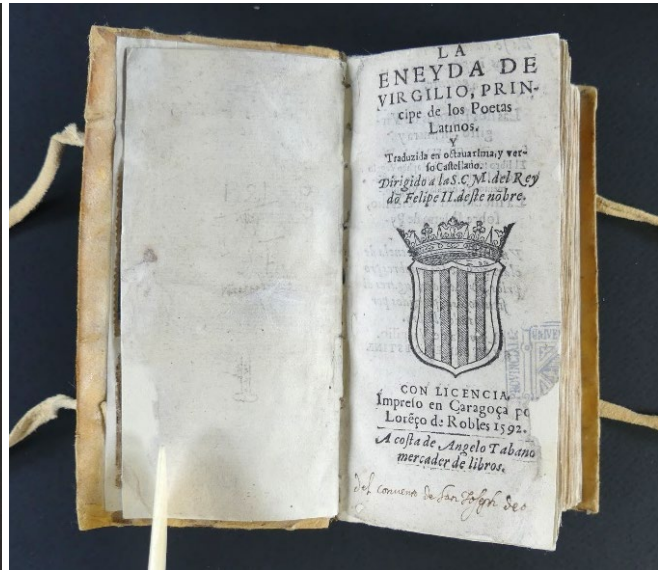 LA
ENEYDA DE
VIRGILIO, PRIN-
cipe de los Poetas
Latinos.
Y
Traduzida en octaua rima, y ver-
so Castellano.
Dirigido a la S.C.M. del Rey
dō Felipe II. deste nōbre.
CON LICENCIA,
Impreso en Caragoça po
Lorēço de Robles 1592.
A costa de Angelo Tabano
mercader de libros.
del convento de San Joseph de